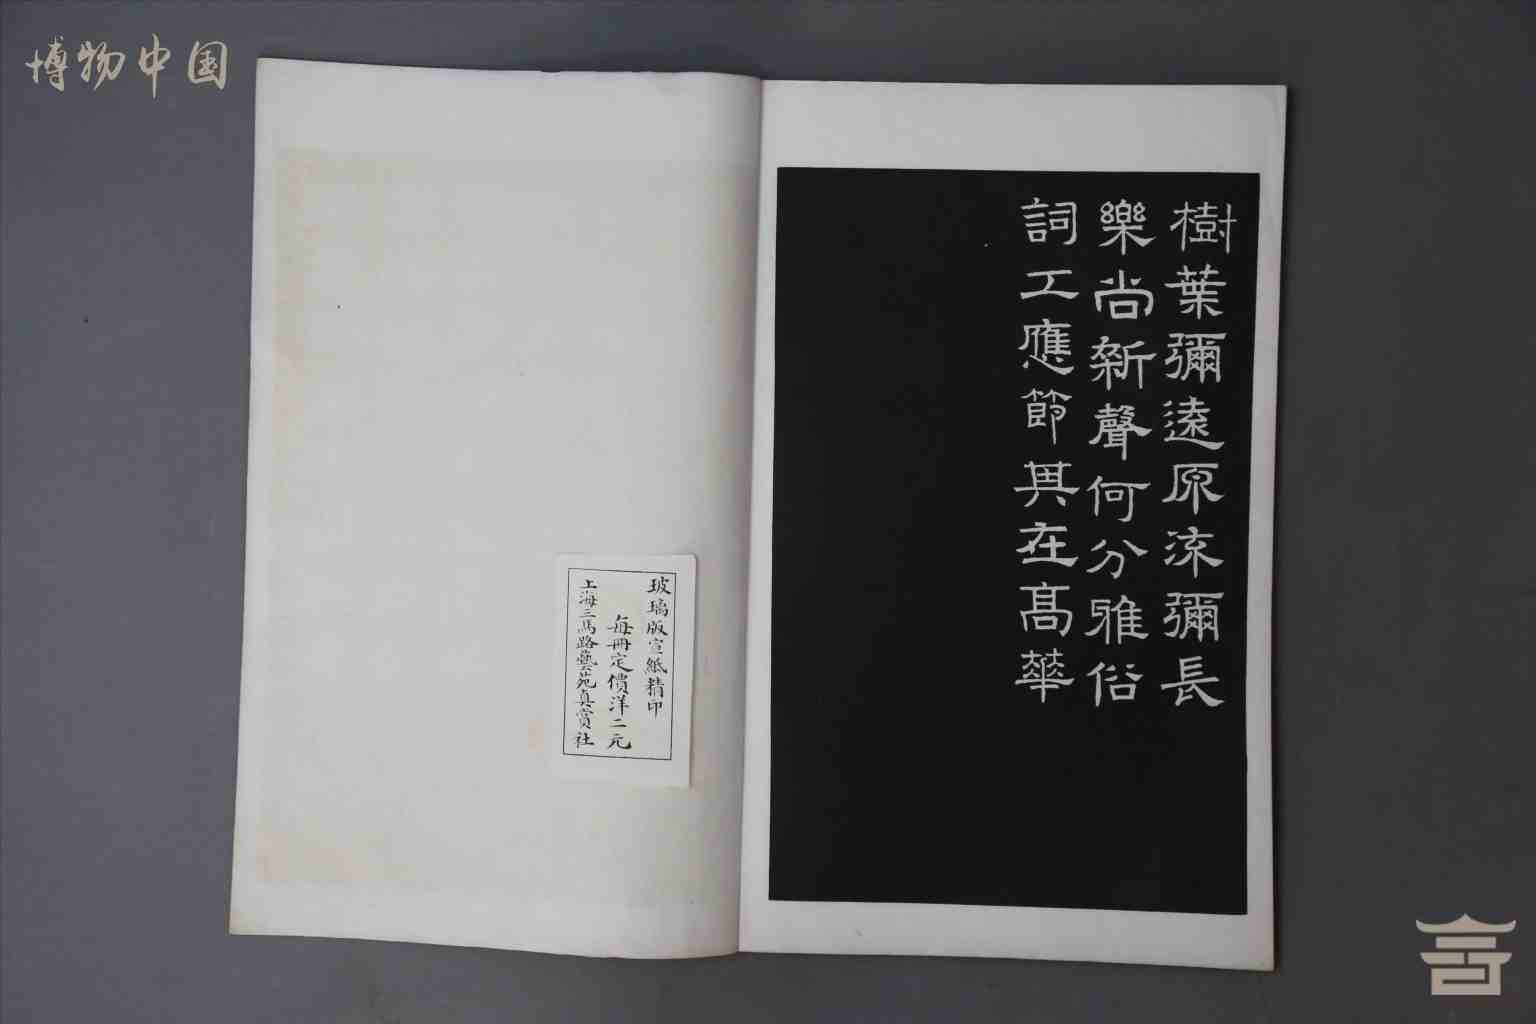 博物中国
樹葉彌遠原流彌長
樂尚新聲何分雅俗
詞工應節異在髙華
玻璃版宣紙精印
每冊定價洋二元
上海三馬路藝苑真賞社